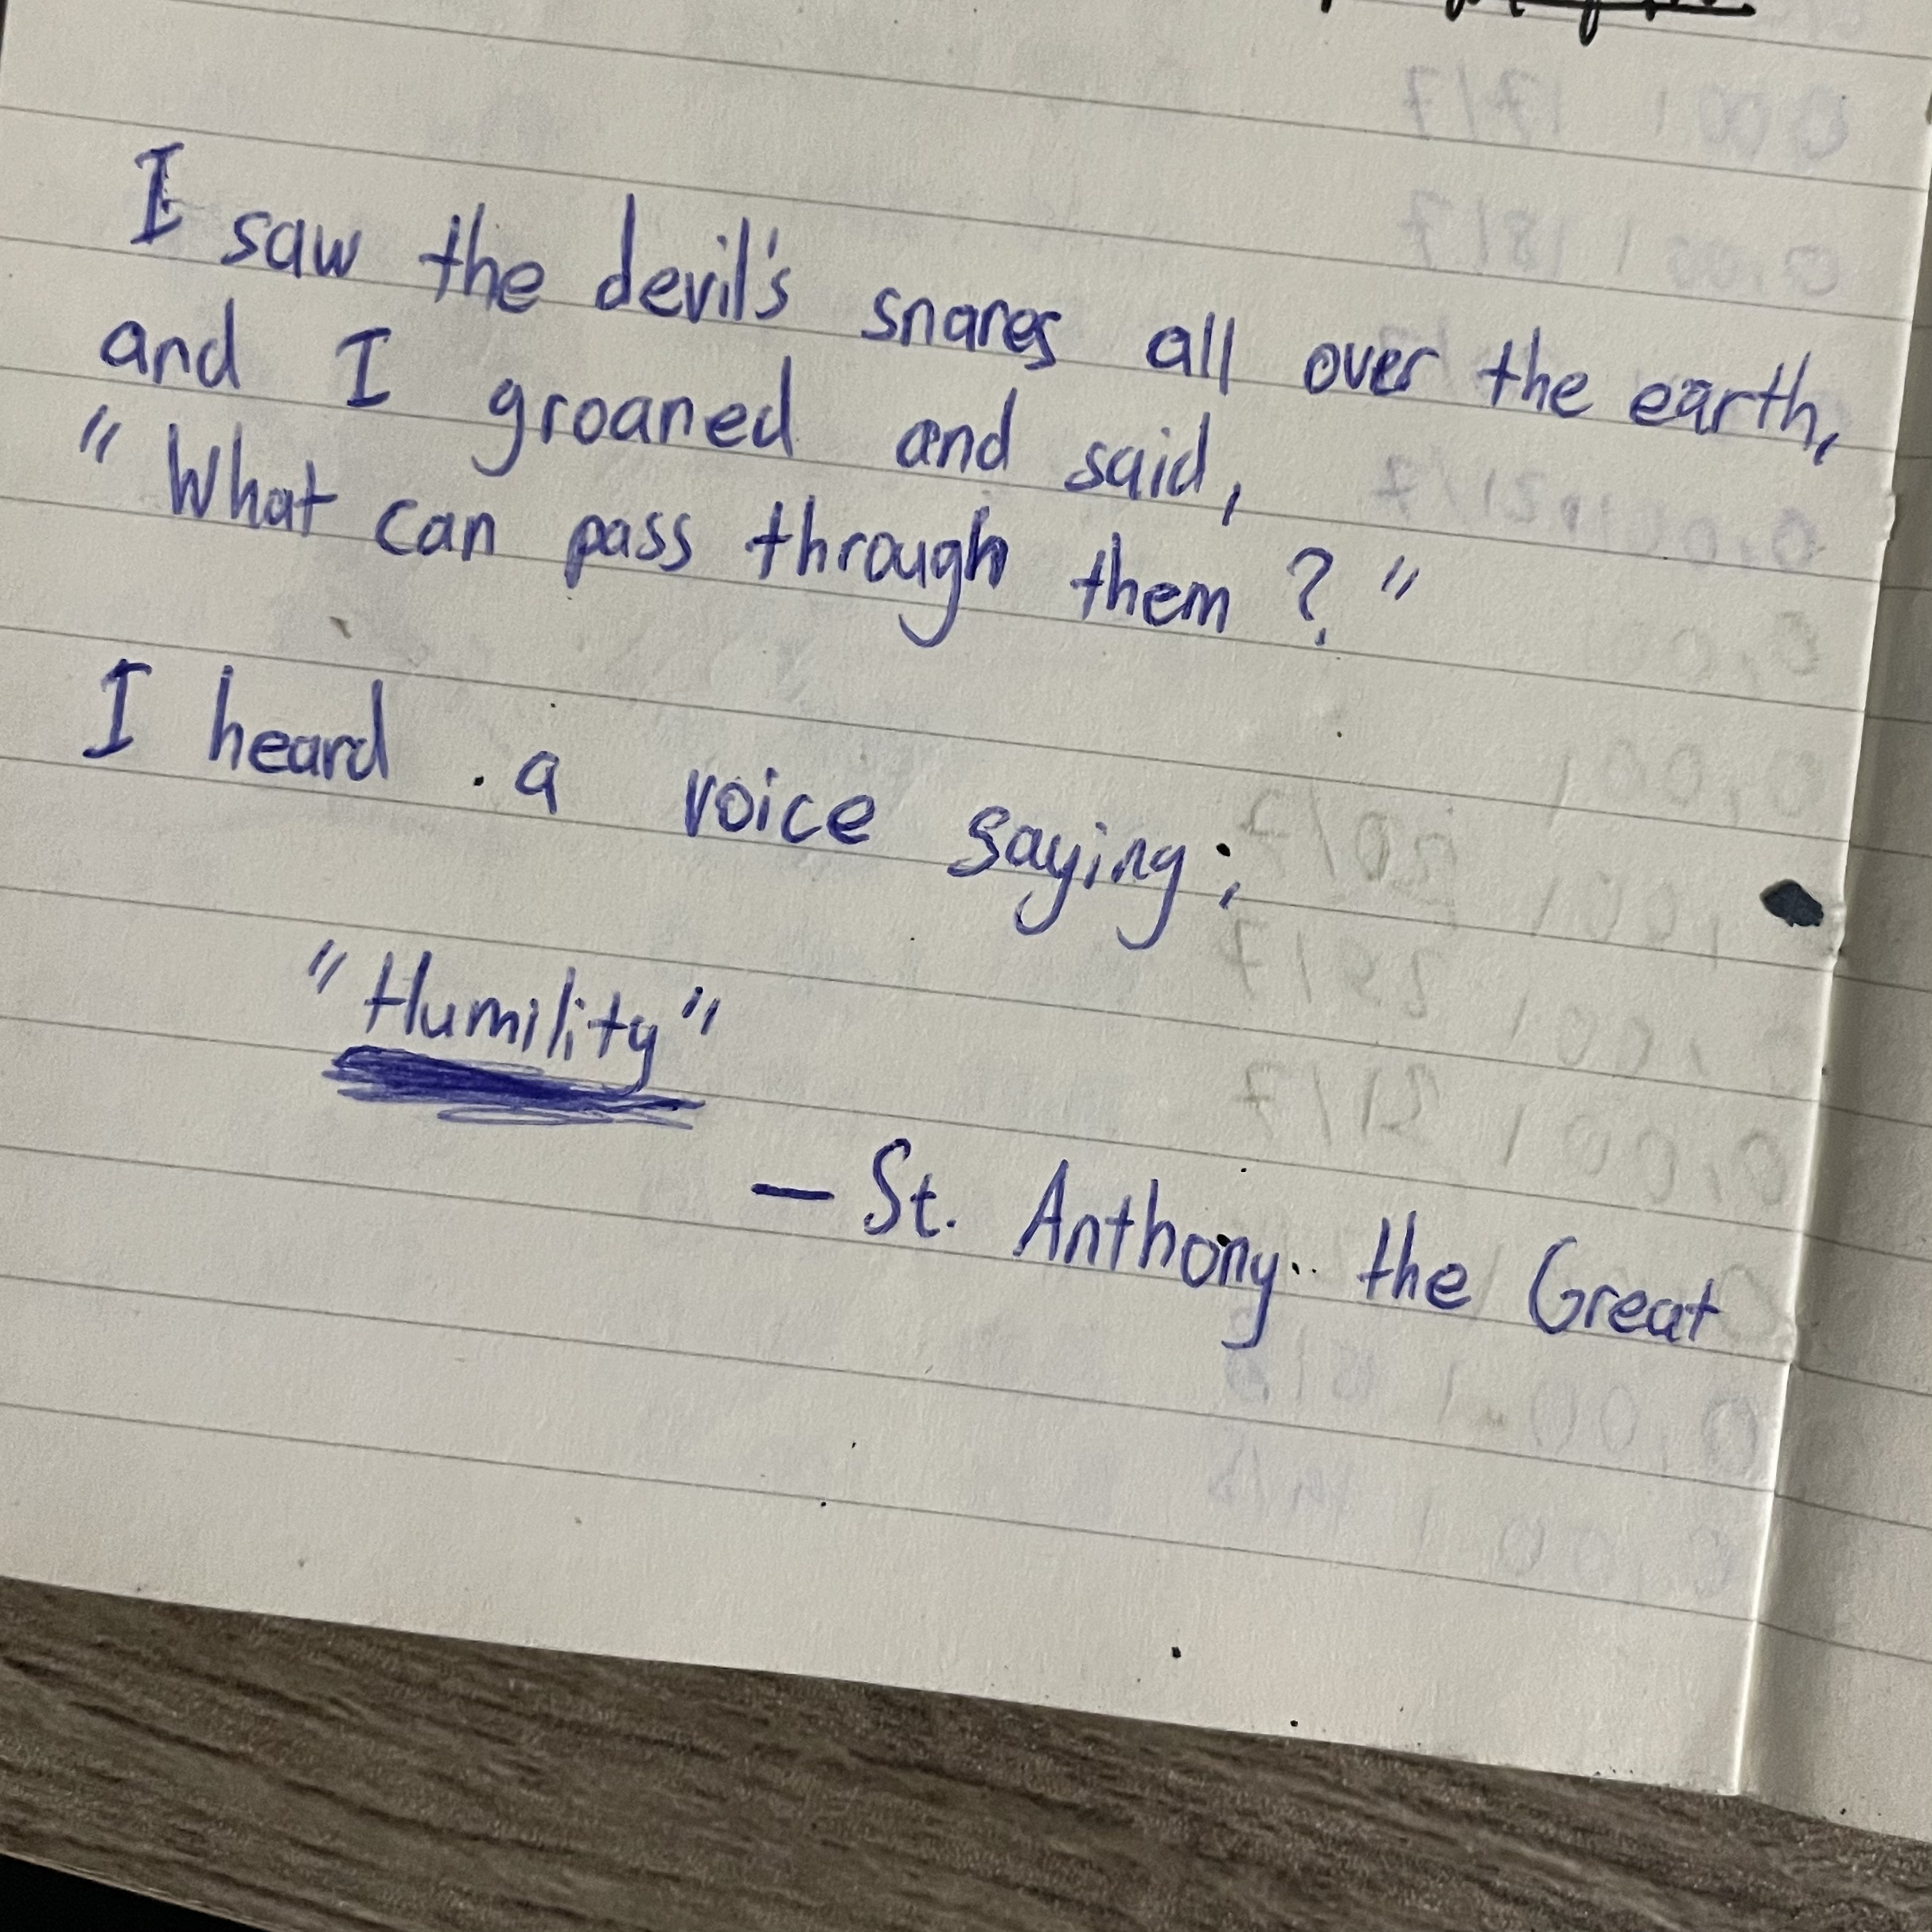 I saw the devil's snares all over the earth,
and I groaned and said,
"What can pass through them?"
I heard a voice saying;
"Humility"
— St. Anthony the Great